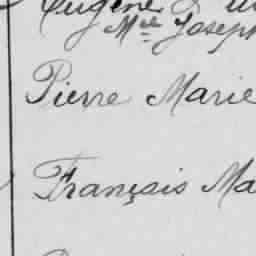 Eugène
Mle Joseph
Pierre Marie
Français Ma